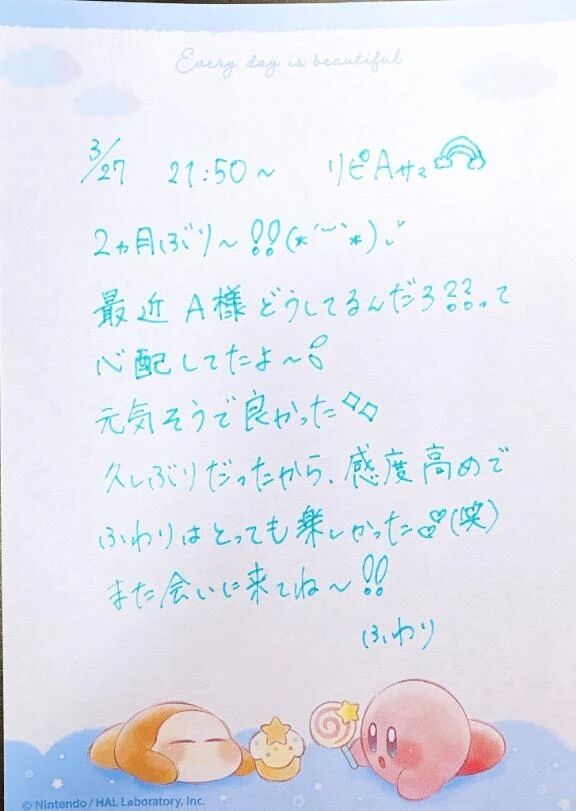 Every day is beautiful
3/27 21:50〜 リピAサマ
2ヵ月ぶり〜!!(*´︶`*)
最近A様どうしてるんだろ??って
心配してたよ〜
元気そうで良かった
久しぶりだったから、感度高めで
ふわりはとっても楽しかった(笑)
また会いに来てね〜!!
ふわり
© Nintendo / HAL Laboratory, Inc.